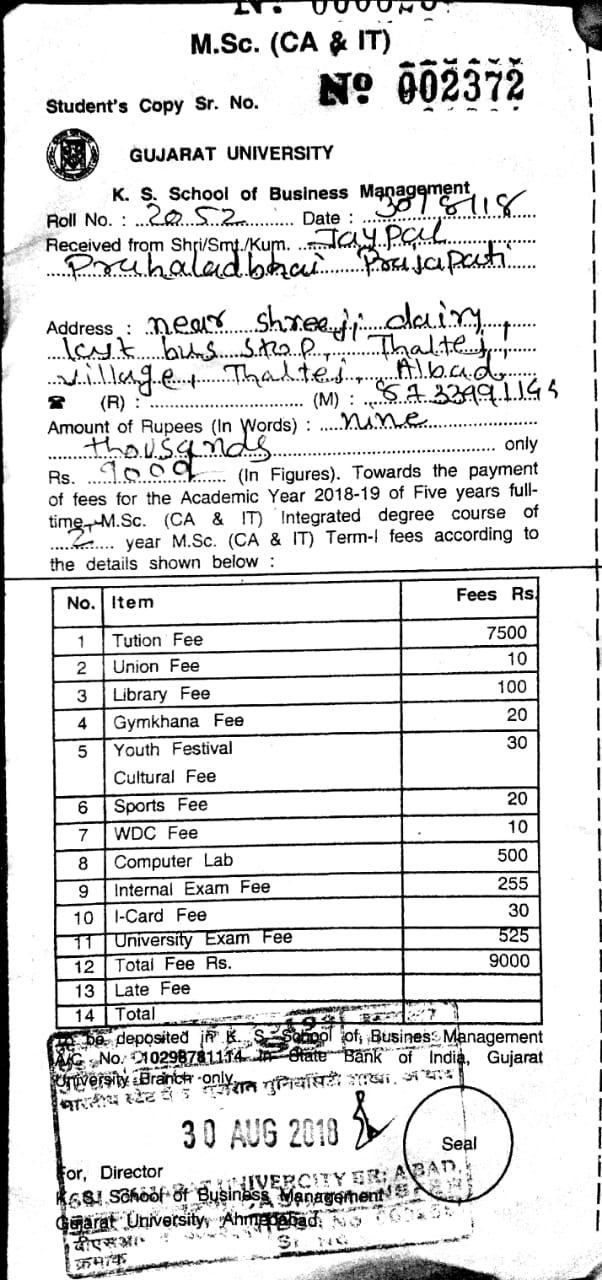 M.Sc. (CA & IT)
Student's Copy Sr. No. Nº 002372
GUJARAT UNIVERSITY
K. S. School of Business Management
Roll No. : 2052 Date : 30/8/18
Received from Shri/Smt./Kum. Jaypal
Prahaladbhai Prajapati
Address : near shreeji dairy,
last bus stop, Thaltej
village, Thaltej, A'bad
(R) : (M) :
Amount of Rupees (In Words) : nine
thousands only
Rs. 9000 (In Figures). Towards the payment
of fees for the Academic Year 2018-19 of Five years full-
time M.Sc. (CA & IT) Integrated degree course of
2 year M.Sc. (CA & IT) Term-I fees according to
the details shown below :
No. Item Fees Rs.
1 Tution Fee 7500
2 Union Fee 10
3 Library Fee 100
4 Gymkhana Fee 20
5 Youth Festival 30
Cultural Fee
6 Sports Fee 20
7 WDC Fee 10
8 Computer Lab 500
9 Internal Exam Fee 255
10 I-Card Fee 30
11 University Exam Fee 525
12 Total Fee Rs. 9000
13 Late Fee
14 Total
To be deposited in K. S. School of Busines: Management
A/C No. 10298781114 in State Bank of India, Gujarat
University Branch only
30 AUG 2018
Seal
For, Director
K. S. School of Business Management
Gujarat University, Ahmedabad.
क्रमांक